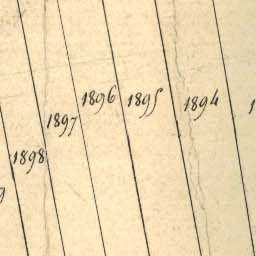 1898
1897
1896
1895
1894